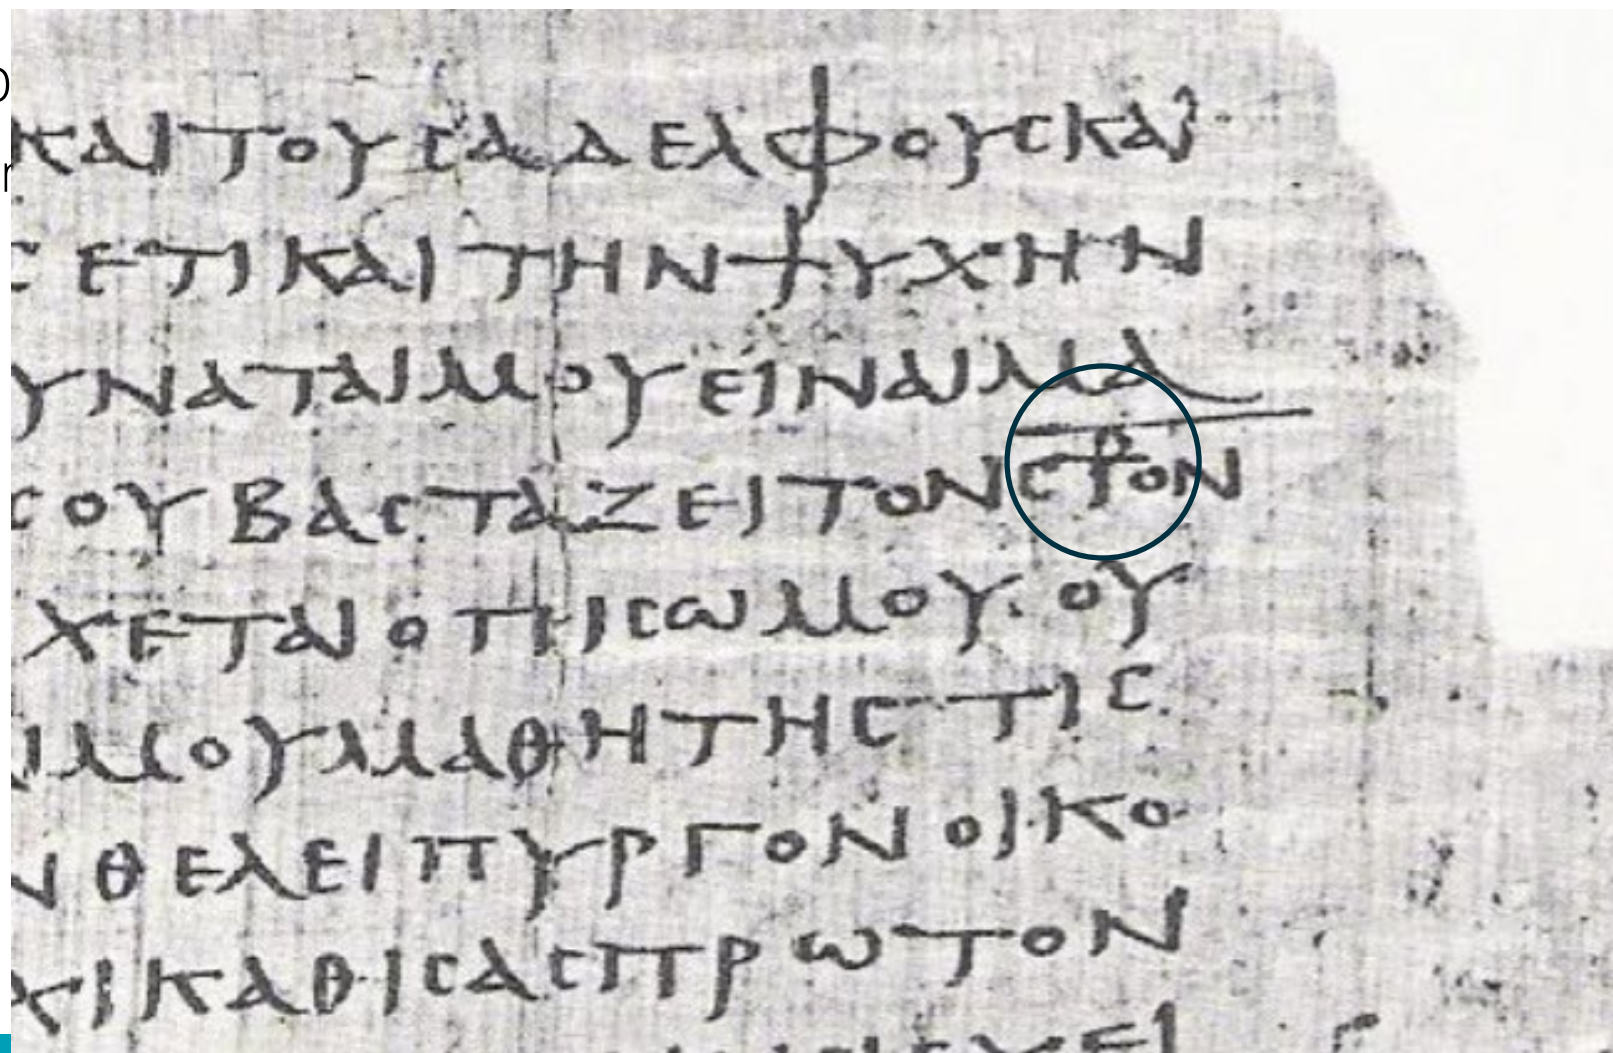 ΚΑΙ ΤΟΥϹ ΑΔΕΛΦΟΥϹ ΚΑΙ
ΕΤΙ ΚΑΙ ΤΗΝ ΨΥΧΗΝ
ΥΝΑΤΑΙ ΜΟΥ ΕΙΝΑΙ ΜΑ
ϹΟΥ ΒΑϹΤΑΖΕΙ ΤΟΝ Ϲ⳨ΟΝ
ΧΕΤΑΙ ΟΠΙϹΩ ΜΟΥ· ΟΥ
ΜΟΥ ΜΑΘΗΤΗϹ ΤΙϹ
Ν ΘΕΛΕΙ ΠΥΡΓΟΝ ΟΙΚΟ
ΧΙ ΚΑΘΙϹΑϹ ΠΡΩΤΟΝ